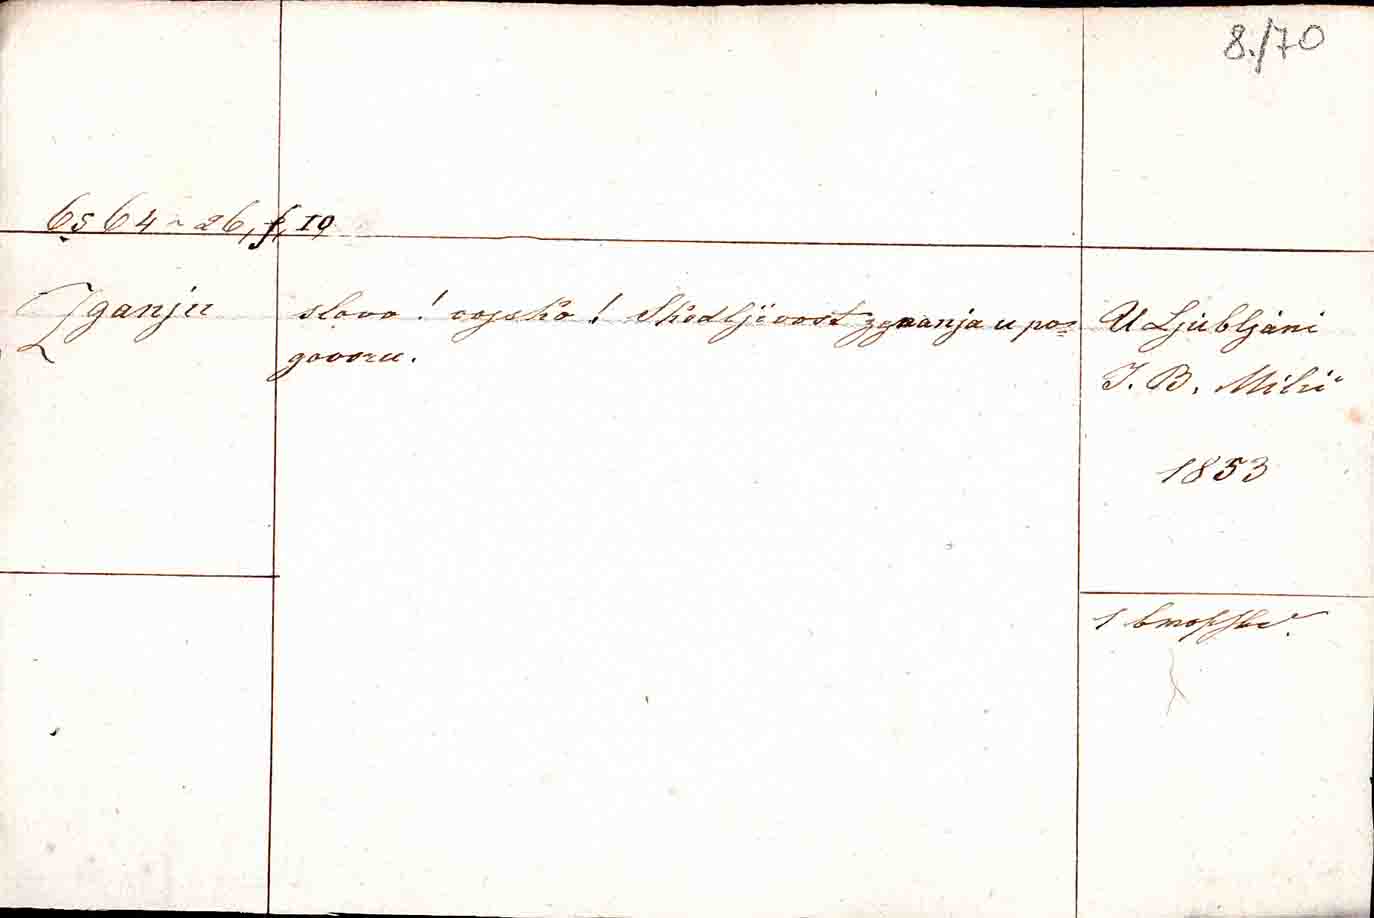 8./70
6564-26, f, 19
Zganju
slovo! vojsko! Škodljivost zganja u po=
govoru.
U Ljubljani
J. B. Milic
1853
1